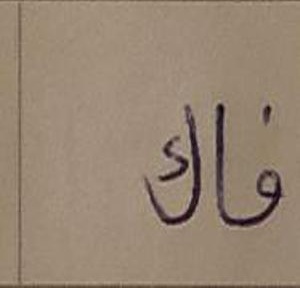 فاك